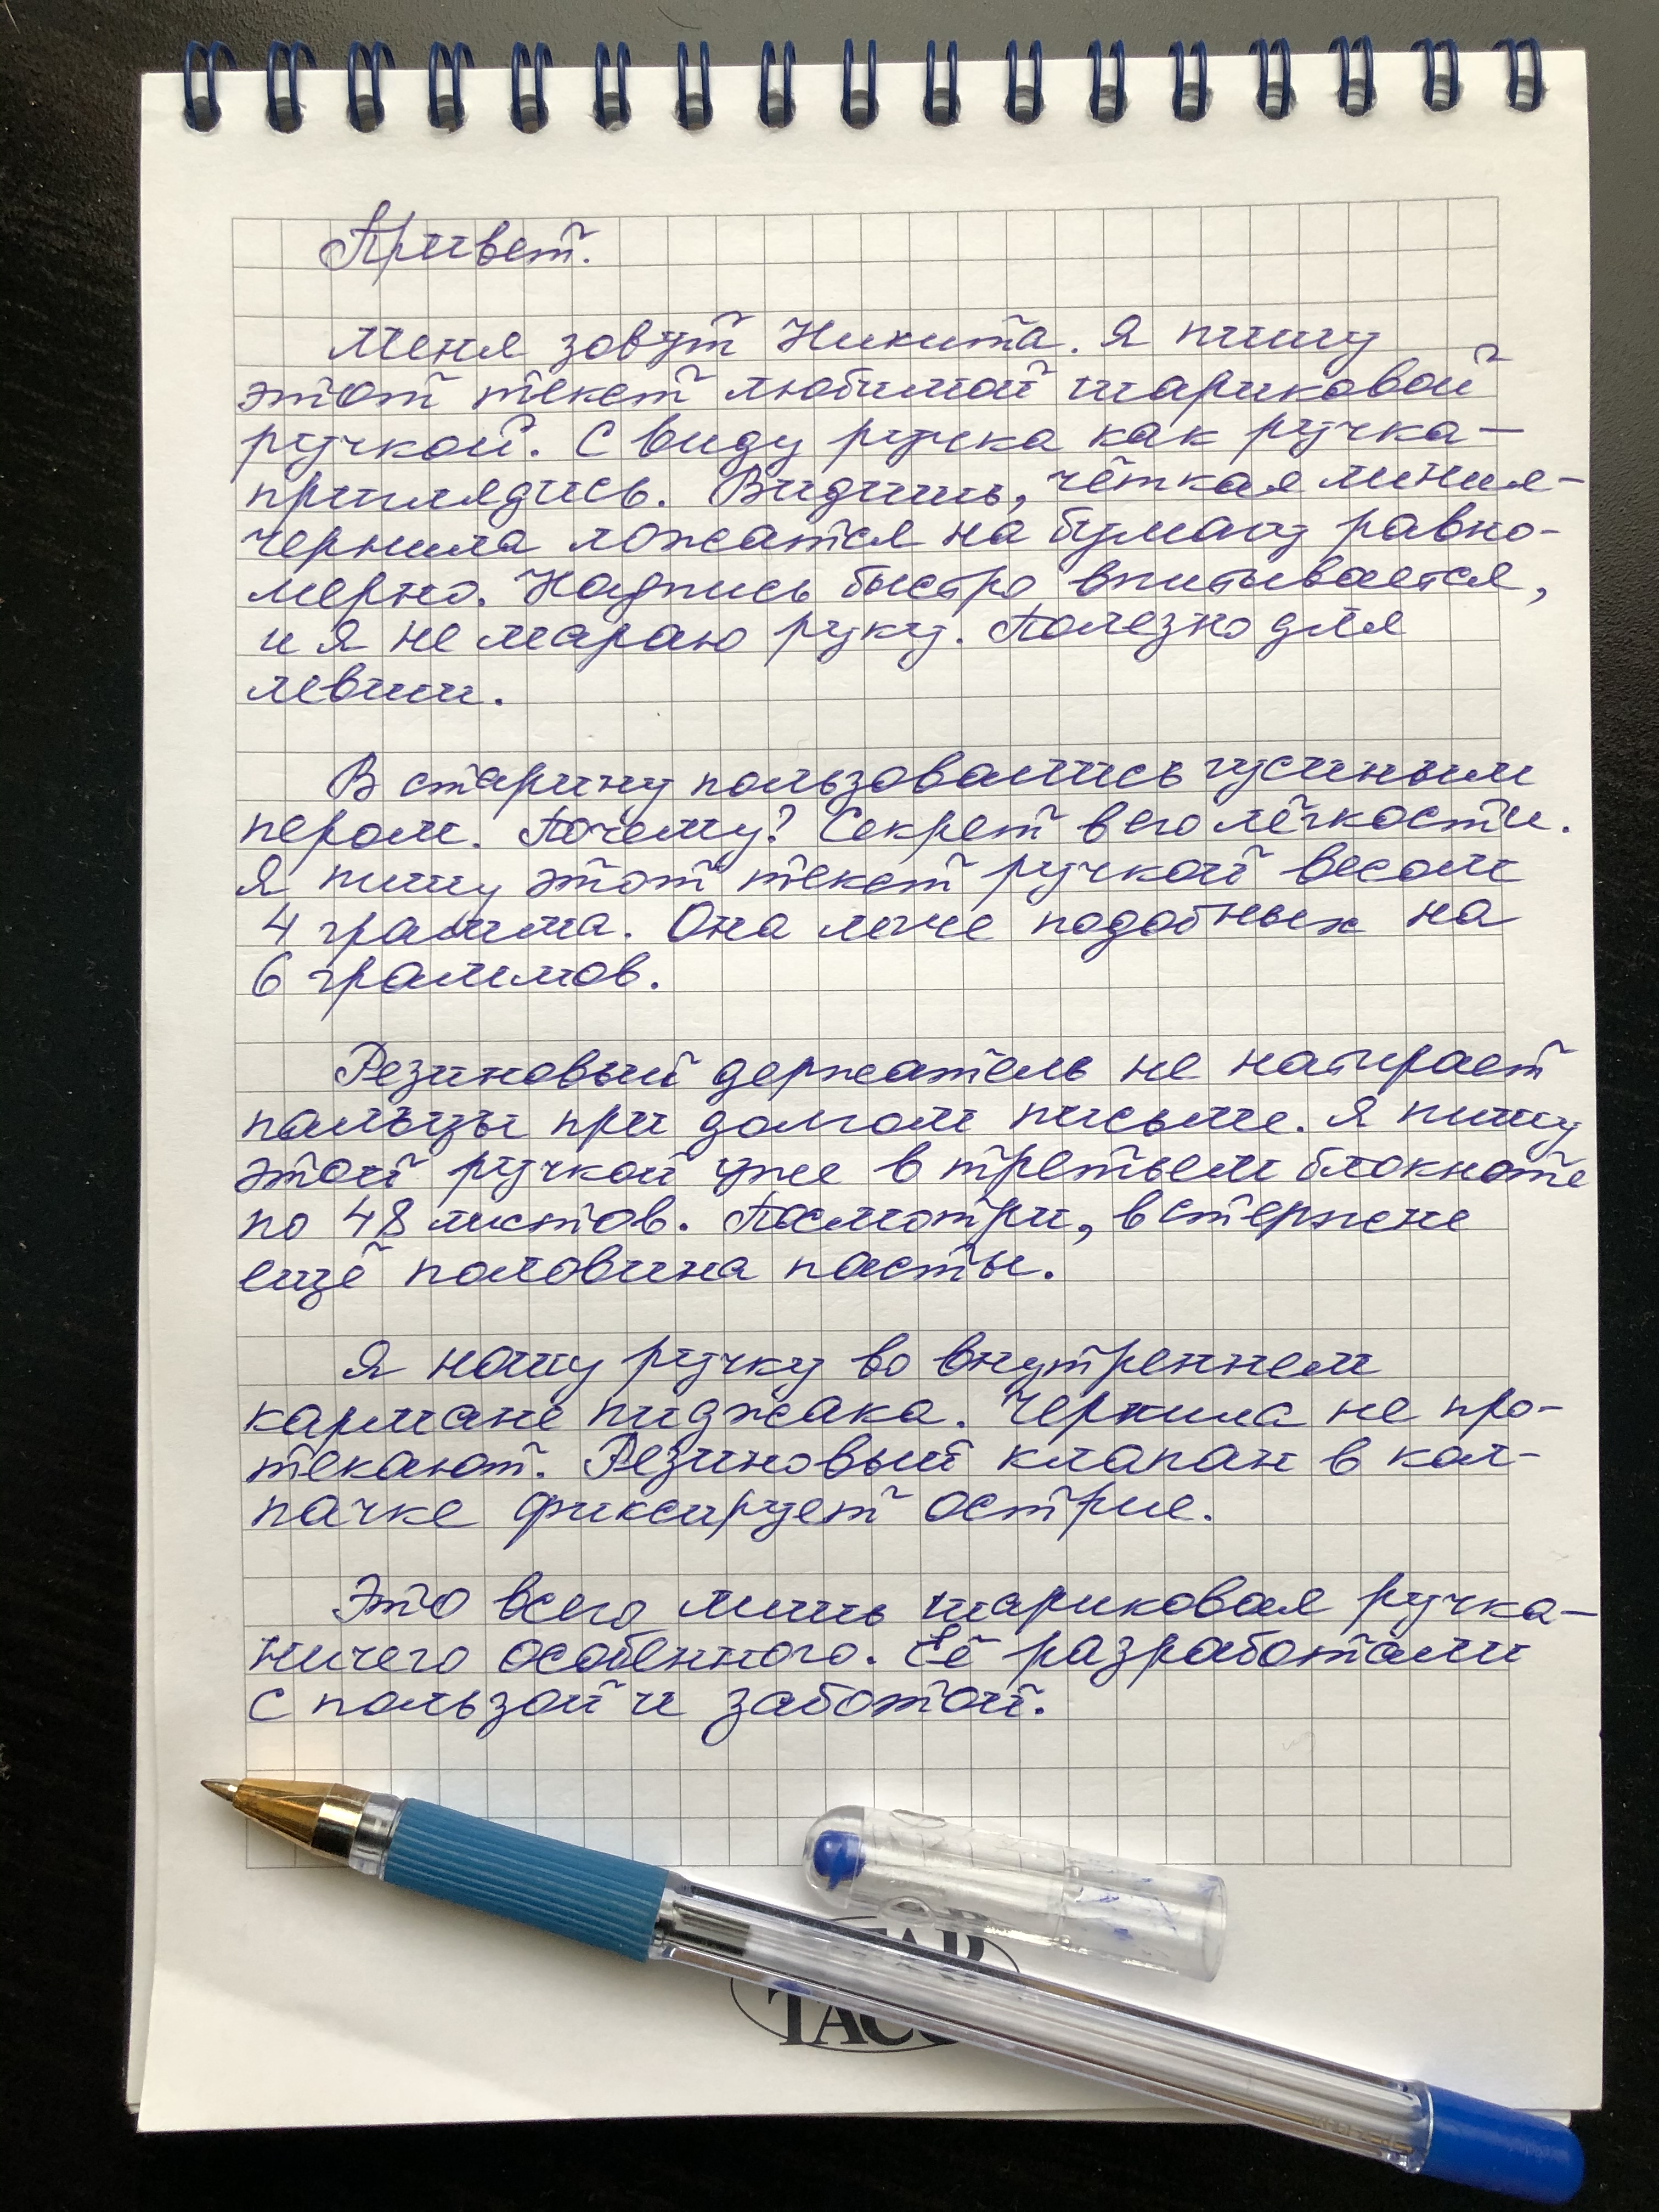 Привет.
Меня зовут Никита. Я пишу
этот текст любимой шариковой
ручкой. С виду ручка как ручка —
приглядись. Видишь, чёткая линия —
чернила ложатся на бумагу равно-
мерно. Надпись быстро впитывается,
и я не мараю руку. Полезно для
левши.
В старину пользовались гусиным
пером. Почему? Секрет в его лёгкости.
Я пишу этот текст ручкой весом
4 грамма. Она легче подобных на
6 граммов.
Резиновый держатель не натирает
пальцы при долгом письме. Я пишу
этой ручкой уже в третьем блокноте
по 48 листов. Посмотри, в стержне
ещё половина пасты.
Я ношу ручку во внутреннем
кармане пиджака. Чернила не про-
текают. Резиновый клапан в кол-
пачке фиксирует острие.
Это всего лишь шариковая ручка —
ничего особенного. Её разработали
с пользой и заботой.
ТАСС